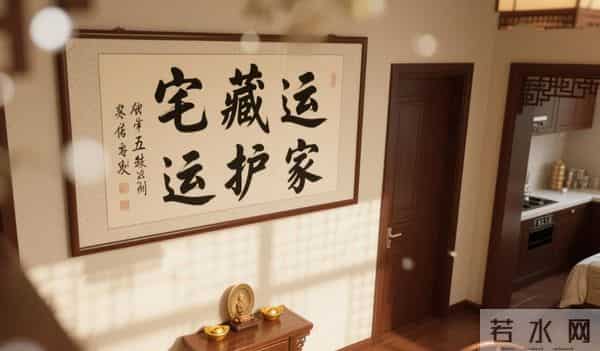 运家
藏护
宅运
若水网